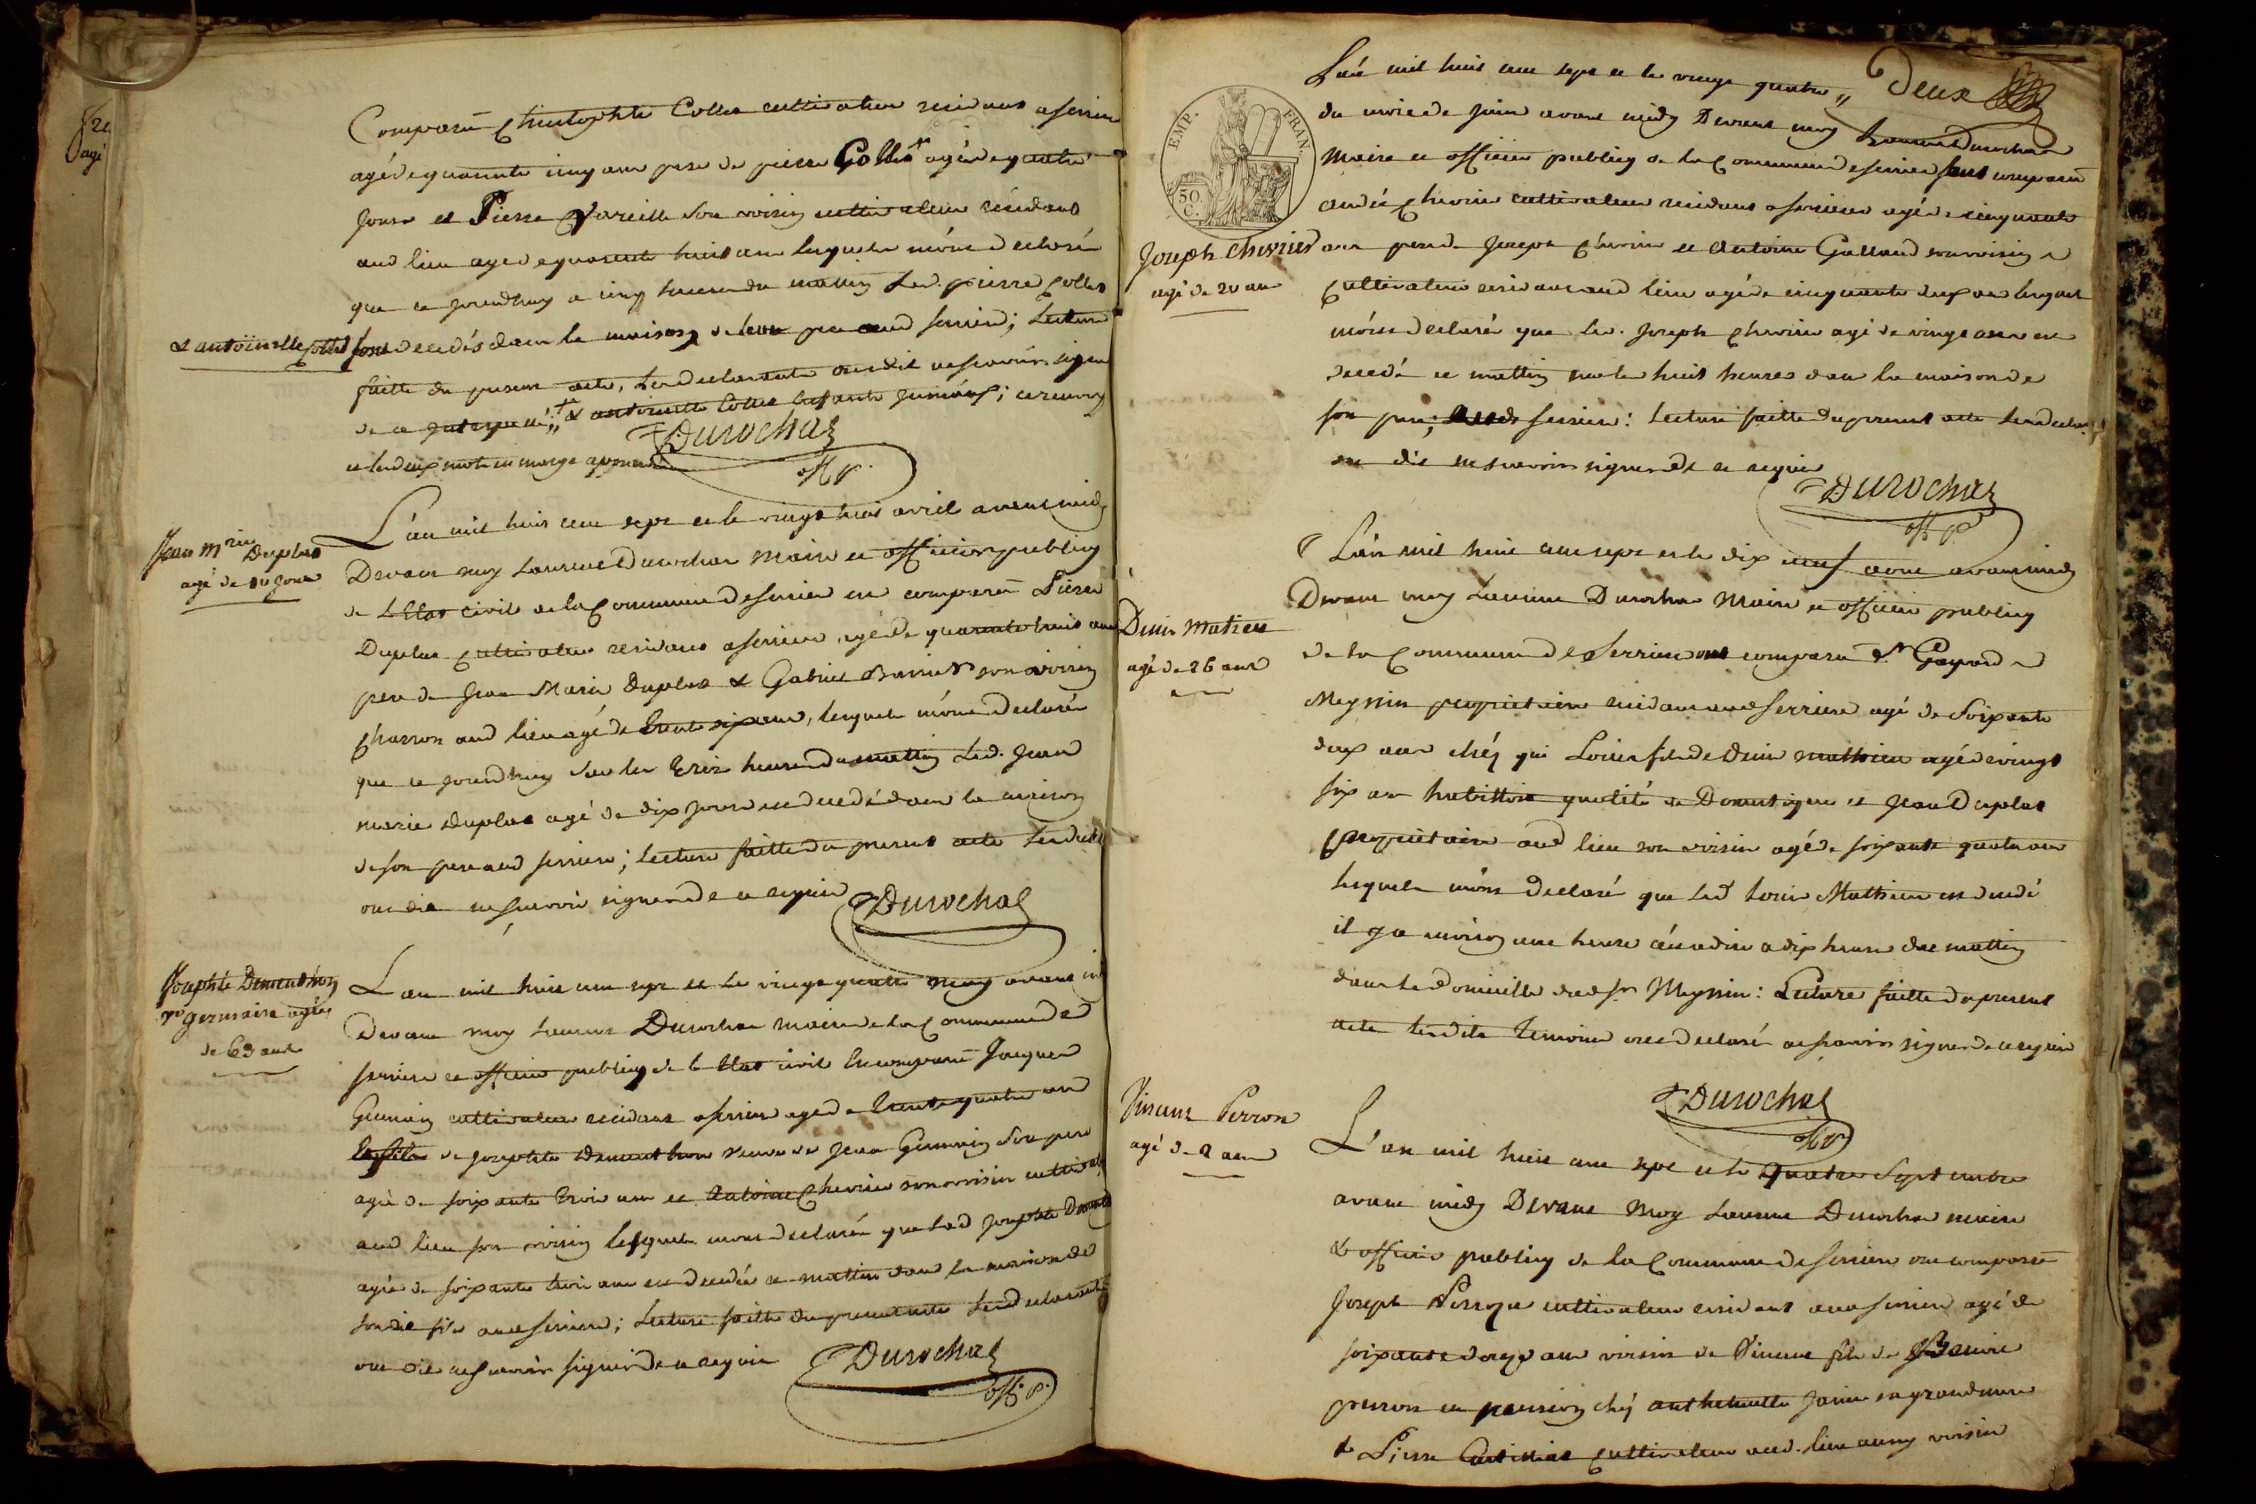 agé
Comparû Christophle Collet cultivateur residant a serriere
agé de quarante cinq ans pere de pierre Collet agé de quatre
jours et Pierre Vareille son voisin cultivateur résidant
aud lieu agé de quarante huit ans lesquels m'ónt declaré
que ce jourdhuy a cinq heures du mattin Led. pierre Collet
& antoinette Collet
sont decedés dans la maison de leur pere aud serriere; Lecture
faitte du present acte, Lesdeclarants ont dit ne scavoir signer
de ce & antoinette Collet Enfants jumeaux;
et les deux mots en marge approuvé
Durochat
off. p.
Jean Mrie Duplat
agé de 10 jours
L'an mil huit cent sept et le vingt huit avril avant midy
Devant moy Laurent Durochat Maire et officier publicq
de L'Etat civil de la Commune de serriere est comparû Pierre
Duplat Cultivateur residant a serriere, agé de quarante huit ans
pere de Jean Marie Duplat & Gabriel Barrier son voisin
Charron aud lieu agé de trente six ans, lesquels m'ónt declaré
que ce jourdhuy sur les trois heures du mattin Led. Jean
marie Duplat agé de dix jours est decedé dans la maison
de son pere aud serriere; Lecture faitte du present acte Lesdecla
ont dit ne scavoir signer de ce requis
Durochat
Josephte Dementhon
ve germain agée
de 63 ans
L'an mil huit cent sept et le vingt quatre may avant mi
Devant moy Laurent Durochat Maire de la Commune de
serriere et officier publicq de L'Etat civil Est comparû Jacques
Germain cultivateur residant a serriere agé de trente quatre ans
Le fils de Josephte Dementhon veuve de Jean Germain son pere
agée de soixante trois ans et Antoine Chevrier son voisin cultivat
aud lieu son voisin lesquels mont declaré que Lad Josephte Dementh
agée de soixante trois ans est decedée ce mattin dans la maison de
son dit fils aud serriere; Lecture faitte du present acte Lesdeclarants
ont dit ne scavoir signer de ce requis
Durochat
off. p.
Deux
EMP. FRAN.
50 C.
L'an mil huit cent sept et le vingt quatre
du mois de juin avant midy Devant moy Laurent Durochat
Maire et officier publicq de la Commune de serriere sont comparû
André Chevrier cultivateur residant a serriere agé de cinquante
Joseph chevrier
agé de 20 ans
ans pere de Joseph Chevrier et Antoine Galland son voisin
Cultivateur residant aud lieu agé de cinquante deux ans lesquels
m'ónt declaré que Led. Joseph Chevrier agé de vingt ans est
decedé ce mattin sur les huit heures dans la maison de
son pere, aud serriere: Lecture faitte du present acte Lesdeclar
ont dit ne scavoir signer de ce requis
Durochat
off. p.
L'an mil huit cent sept et le dix neuf aout avant midy
Devant moy Laurent Durochat Maire et officier publicq
Denis Mathieu
agé de 26 ans
de la Commune de Serriere ont comparû Sr Gaspard
Meynin proprietaire residant aud serriere agé de soixante
deux ans chéz qui Louis fils de Denis Mathieu agé de vingt
six ans habittoit qualité de Domestique et Jean Duplat
proprietaire aud lieu son voisin agé de soixante quatre ans
lesquels m'ónt declaré que Led Louis Mathieu est decedé
il y a environ une heure c'est a dire a dix heures du mattin
dans le domicille dud sr Meynin: Lecture faitte du present
acte Lesdits temoins ont declaré ne scavoir signer de ce requis
Durochat
off. p.
Vincent Perron
agé de 2 ans
L'an mil huit cent sept et le quatre Septembre
avant midy Devant Moy Laurent Durochat maire
& officier publicq de la Commune de serriere ont comparû
Joseph cultivateur residant aud serriere agé de
soixante douze ans voisin de Vincent fils de Benoit
perron en pension chéz anthelmette Janin sa grand mere
& Pierre cultivateur aud. lieu aussy voisin